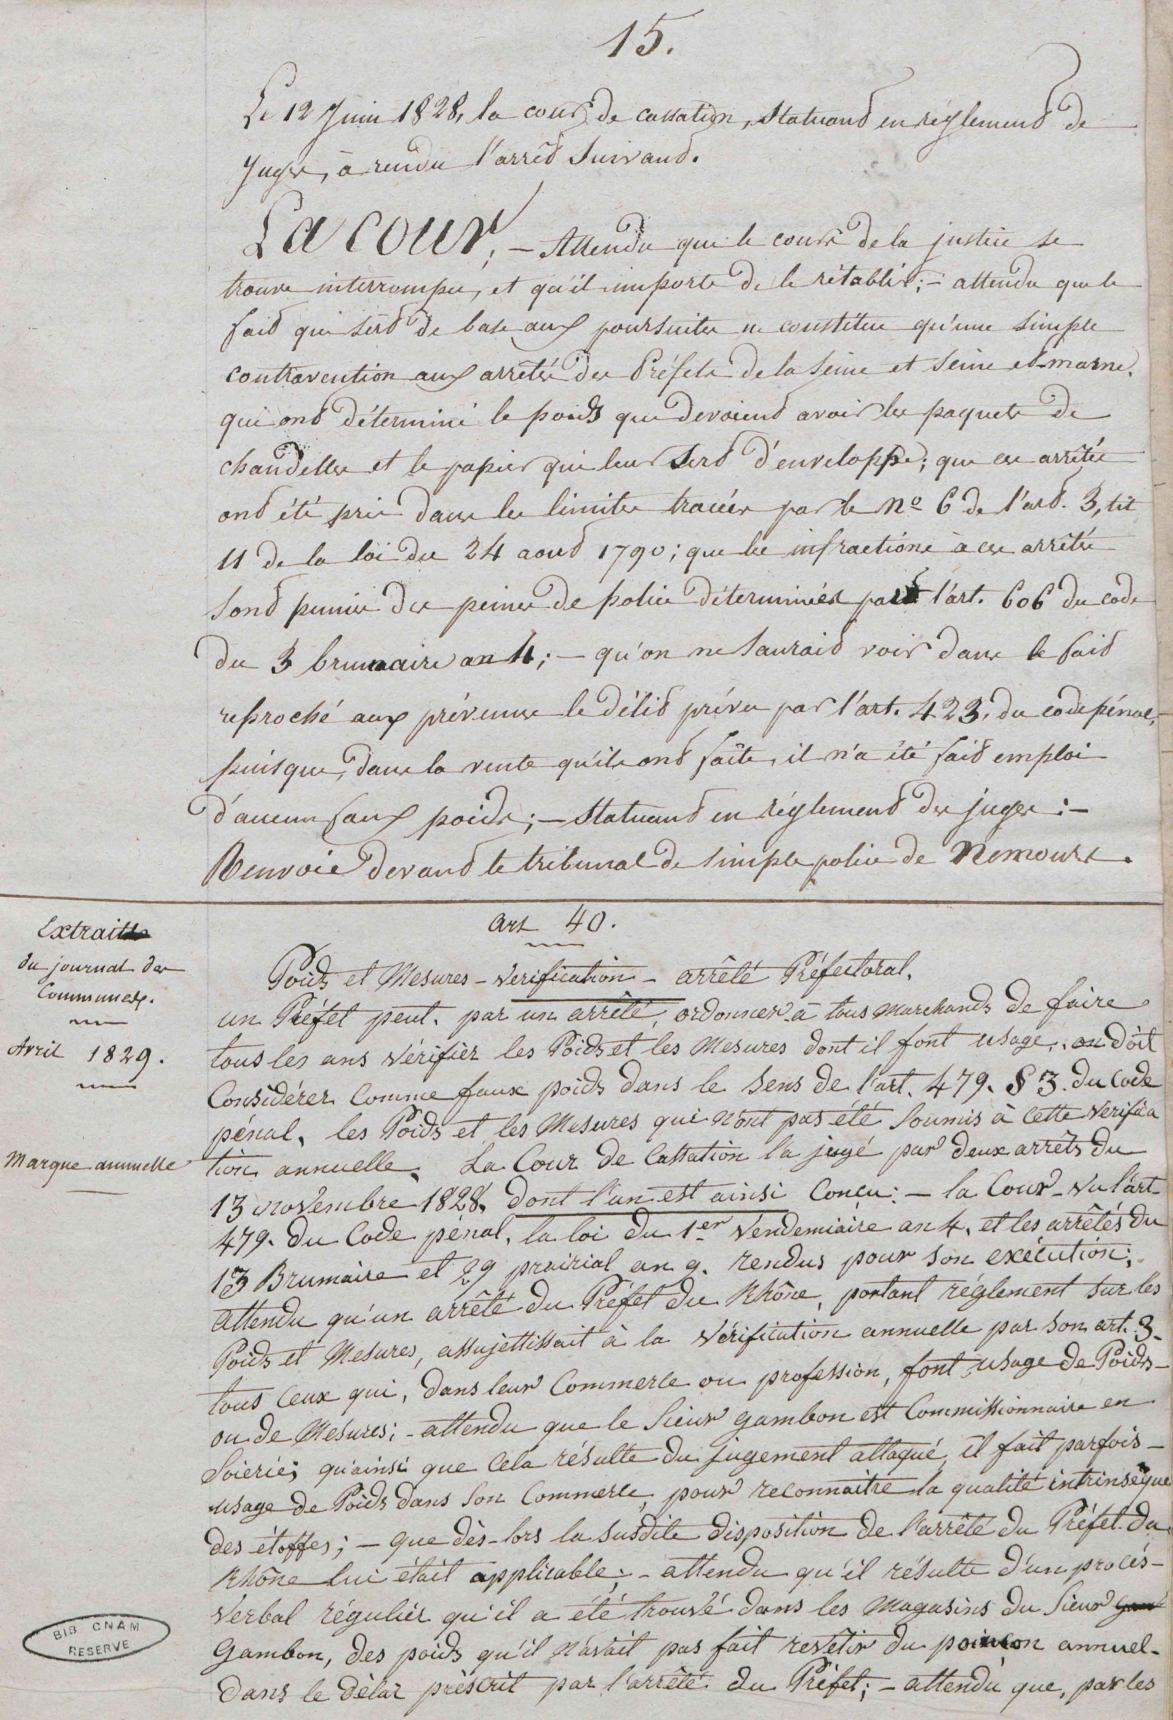 15.
Le 12 Juin 1828, la cour de cassation, statuant en réglement de
Juges, a rendu l'arrêt suivant.
La cour; — Attendu que le cours de la justice se
trouve interrompu, et qu'il importe de le rétablir; — attendu que le
fait qui sert de base aux poursuites ne constitue qu'une simple
contravention aux arrêtés des Préfets de la Seine et Seine et marne,
qui ont déterminé le poids que devoient avoir les paquets de
chandelles et le papier qui leur sert d'enveloppe; que ces arrêtés
ont été pris dans les limites tracées par le No 6 de l'art. 3, tit
11 de la loi du 24 aout 1790; que les infractions à ces arrêtés
sont punies des peines de police déterminées par l'art. 606 du code
du 3 brumaire an 4; — qu'on ne saurait voir dans le fait
reproché aux prévenus le délit prévu par l'art. 423, du code pénal,
puisque, dans la vente qu'ils ont faite, il n'a été fait emploi
d'aucun faux poids; — statuant en réglement des juges: —
Renvoie devant le tribunal de simple police de Nemours.
Extraits
du journal des
Communes.
Avril 1829.
Marque annuelle
art 40.
Poids et Mesures - Verification - arrêté Préfectoral.
un Préfet peut, par un arrêté, ordonner à tous marchands de faire
tous les ans vérifier les Poids et les Mesures dont il font usage, on doit
Considérer comme faux poids dans le sens de l'art. 479. § 3. du Code
pénal, les Poids et les Mesures qui n'ont pas été soumis à cette verifica
tion annuelle. La Cour de Cassation l'a jugé par deux arrêts du
13 novembre 1828, dont l'un est ainsi conçu: — la Cour - vu l'art
479. du Code pénal, la loi du 1er Vendemiaire an 4, et les arrêtés du
13 Brumaire et 29 prairial an 9. rendus pour son exécution;
attendu qu'un arrêté du Préfet du Rhône, portant réglement sur les
Poids et Mesures, assujettissait à la vérification annuelle par son art. 3.
tous ceux qui, dans leur Commerce ou profession, font usage de Poids
ou de Mesures; - attendu que le Sieur Gambon est Commissionnaire en
Soierie; qu'ainsi que cela résulte du jugement attaqué, il fait parfois
usage de Poids dans son Commerce, pour reconnaitre la qualité intrinsèque
des étoffes; — que dès-lors la susdite disposition de l'arrêté du Préfet du
Rhône lui était applicable: - attendu qu'il résulte d'un procès-
verbal régulier qu'il a été trouvé dans les Magasins du Sieur Gam
Gambon, des poids qu'il n'avait pas fait revêtir du poinçon annuel
dans le délai préscrit par l'arrêté du Préfet; - attendu que, par les
BIB CNAM
RESERVE